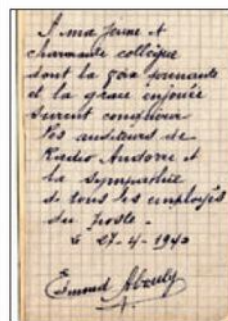 A ma jeune et
charmante collègue
dont la voix sonnante
et la grâce enjouée
surent conquérir
les auditeurs de
Radio Andorre et
la sympathie
de tous les employés
du poste.
le 27-4-1940